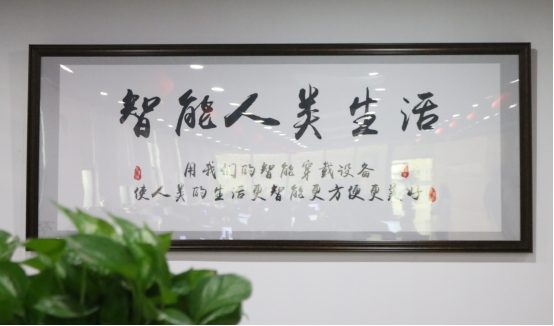 智能人类生活
用我们的智能穿戴设备
使人类的生活更智能更方便更美好